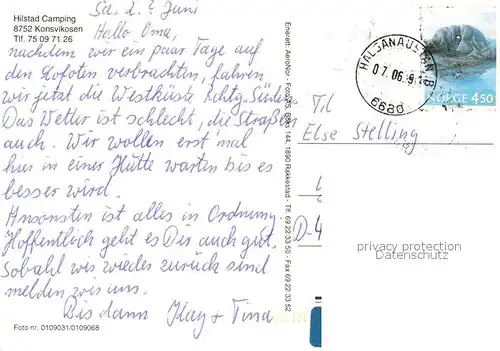 Hilstad Camping
8752 Konsvikosen
Tlf. 75 09 71 26
Sa. d. 7. Juni
Hallo Oma,
nachdem wir ein paar Tage auf
den Lofoten verbrachten, fahren
wir jetzt die Westküste Richtg. Süden.
Das Wetter ist schlecht, die Straßen
auch. Wir wollen erst'mal
hier in einer Hütte warten bis es
besser wird.
Ansonsten ist alles in Ordnung.
Hoffentlich geht es Dir auch gut.
Sobald wir wieder zurück sind
melden wir uns.
Bis dann Kay + Tina
Foto nr. 0109031/0109068
Enerett: Aero Nor - Foto 144, 1890 Rakkestad - Tlf. 69 22 33 50 - Fax 69 22 33 52
HALSANAUSTAN B
07.06.9
6680
NORGE 450
Til
Else Stelling
D-4
privacy protection
Datenschutz